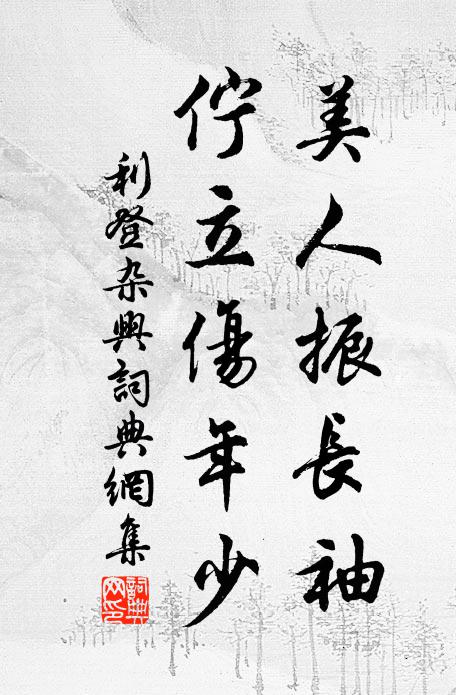 美人振長袖
佇立傷年少
利登杂興詞典網集
詞典網印